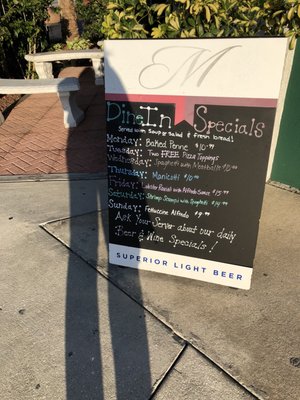 M
Dine In Specials
Served with Soup or Salad & fresh bread!
Monday: Baked Penne $10.99
Tuesday: Two FREE Pizza Toppings
Wednesday: Spaghetti with Meatballs
Thursday: Manicotti
Friday: Lobster Ravioli with Alfredo Sauce
Saturday: Shrimp Scampi with Spaghetti
Sunday: Fettuccine Alfredo $9.99
Ask Your Server about our daily
Beer & Wine Specials!
SUPERIOR LIGHT BEER